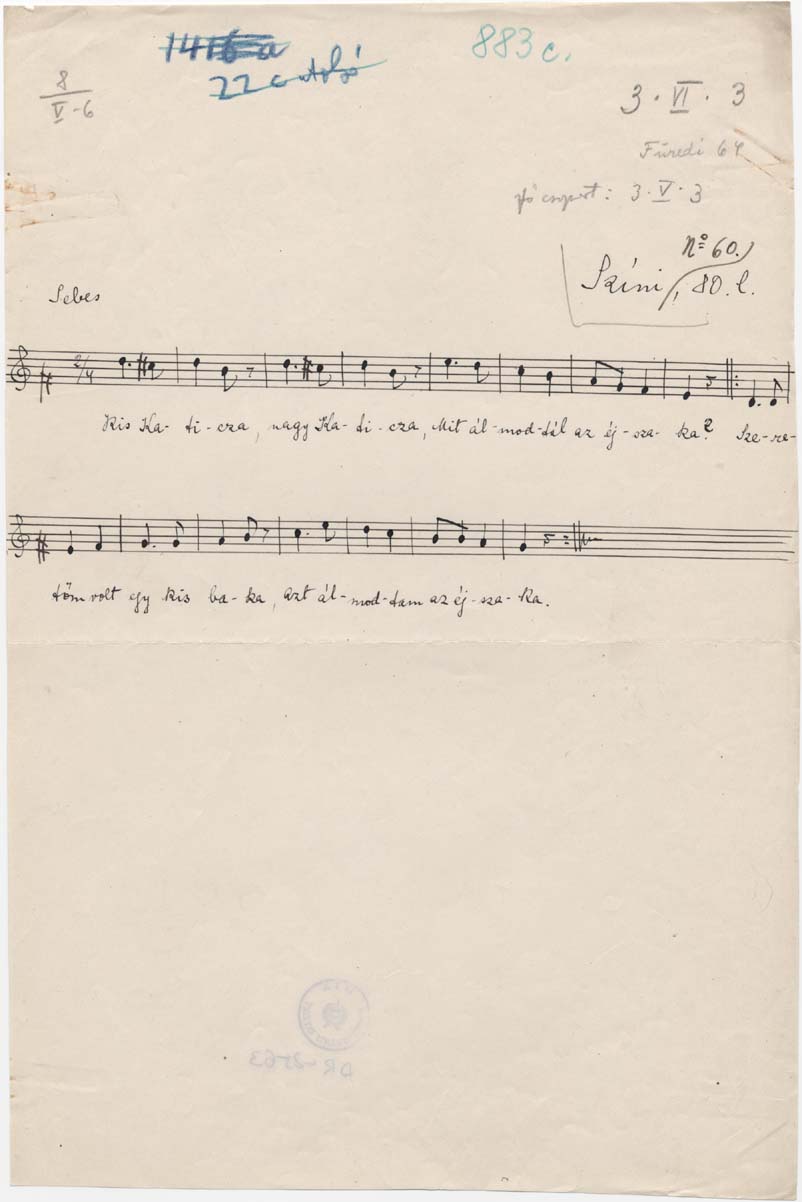 1416 a
22 c utolsó
883 c.
8
V-6
3 · VI · 3
Füredi 64
fő csoport: 3 · V · 3
No 60.)
Színi, 80. l.
Sebes
2/4
Kis Ka- ti- cza, nagy Ka- ti- cza, Mit ál- mod- tál az éj- sza- ka? Sze- re-
tőm volt egy kis ba- ka, azt ál- mod- tam az éj- sza- ka.